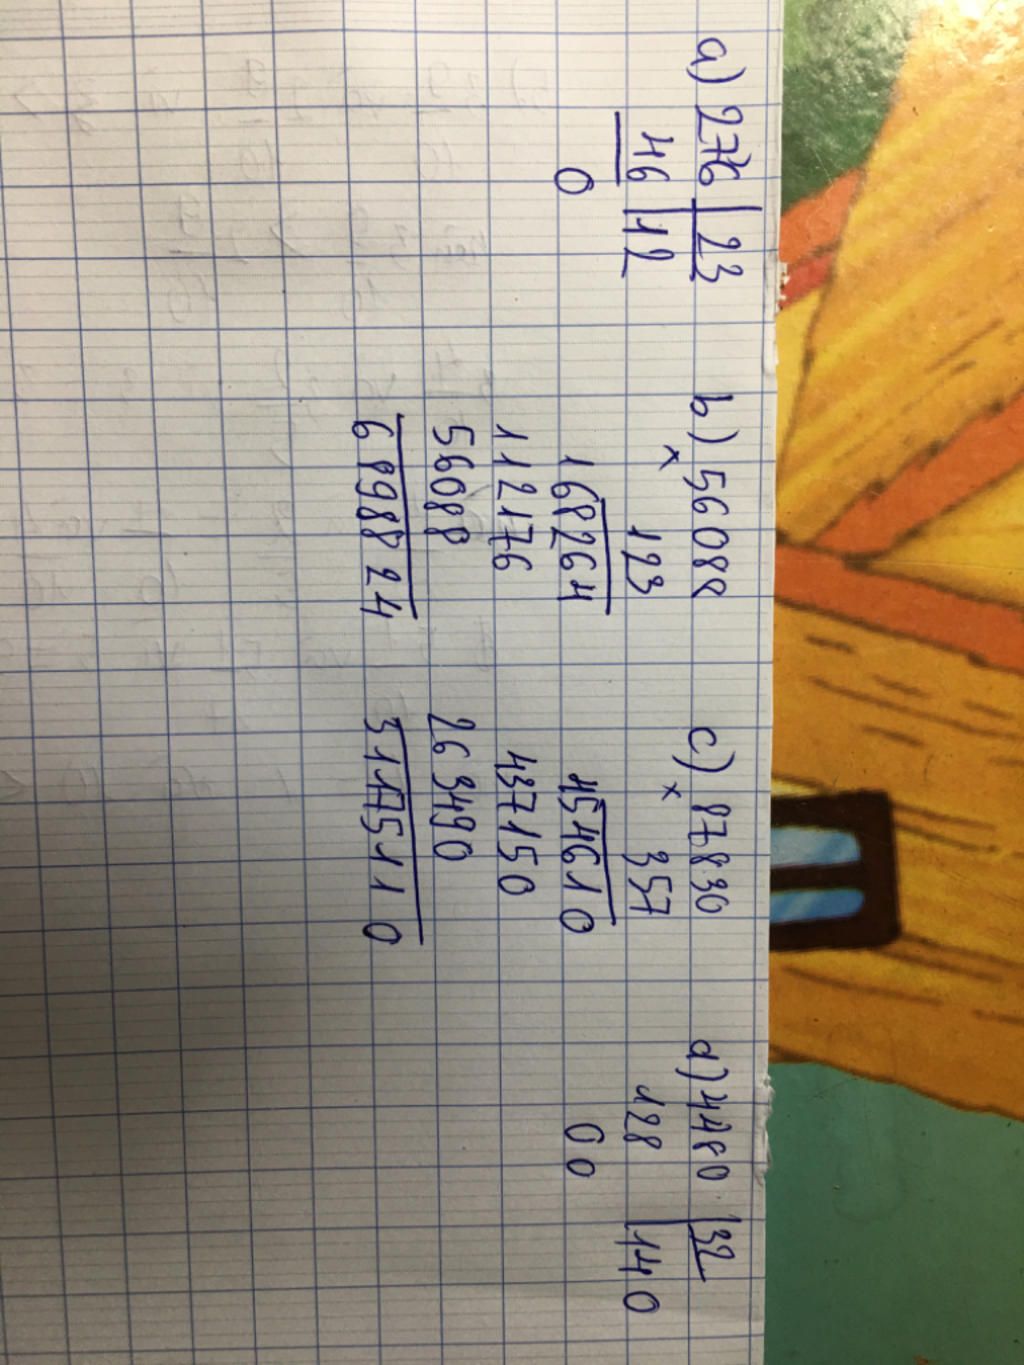 a) 276 | 23 b) 56088 c) 87830 d) 4480 | 32
46 | 12 × 123 × 357 128 | 140
0 168264 454610 00
112176 437150
56088 263490
6898824 31175110